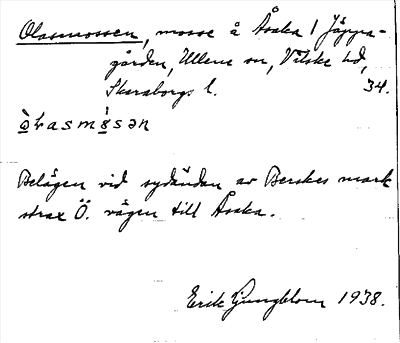 Olasmossen, mosse å Åsaka 1 Jäppa-
gården, Ullene sn, Vilske hd,
Skaraborgs l. 34.
Belägen vid sydändan av Berskes mark
strax Ö. vägen till Åsaka.
Erik Ljungblom 1938.